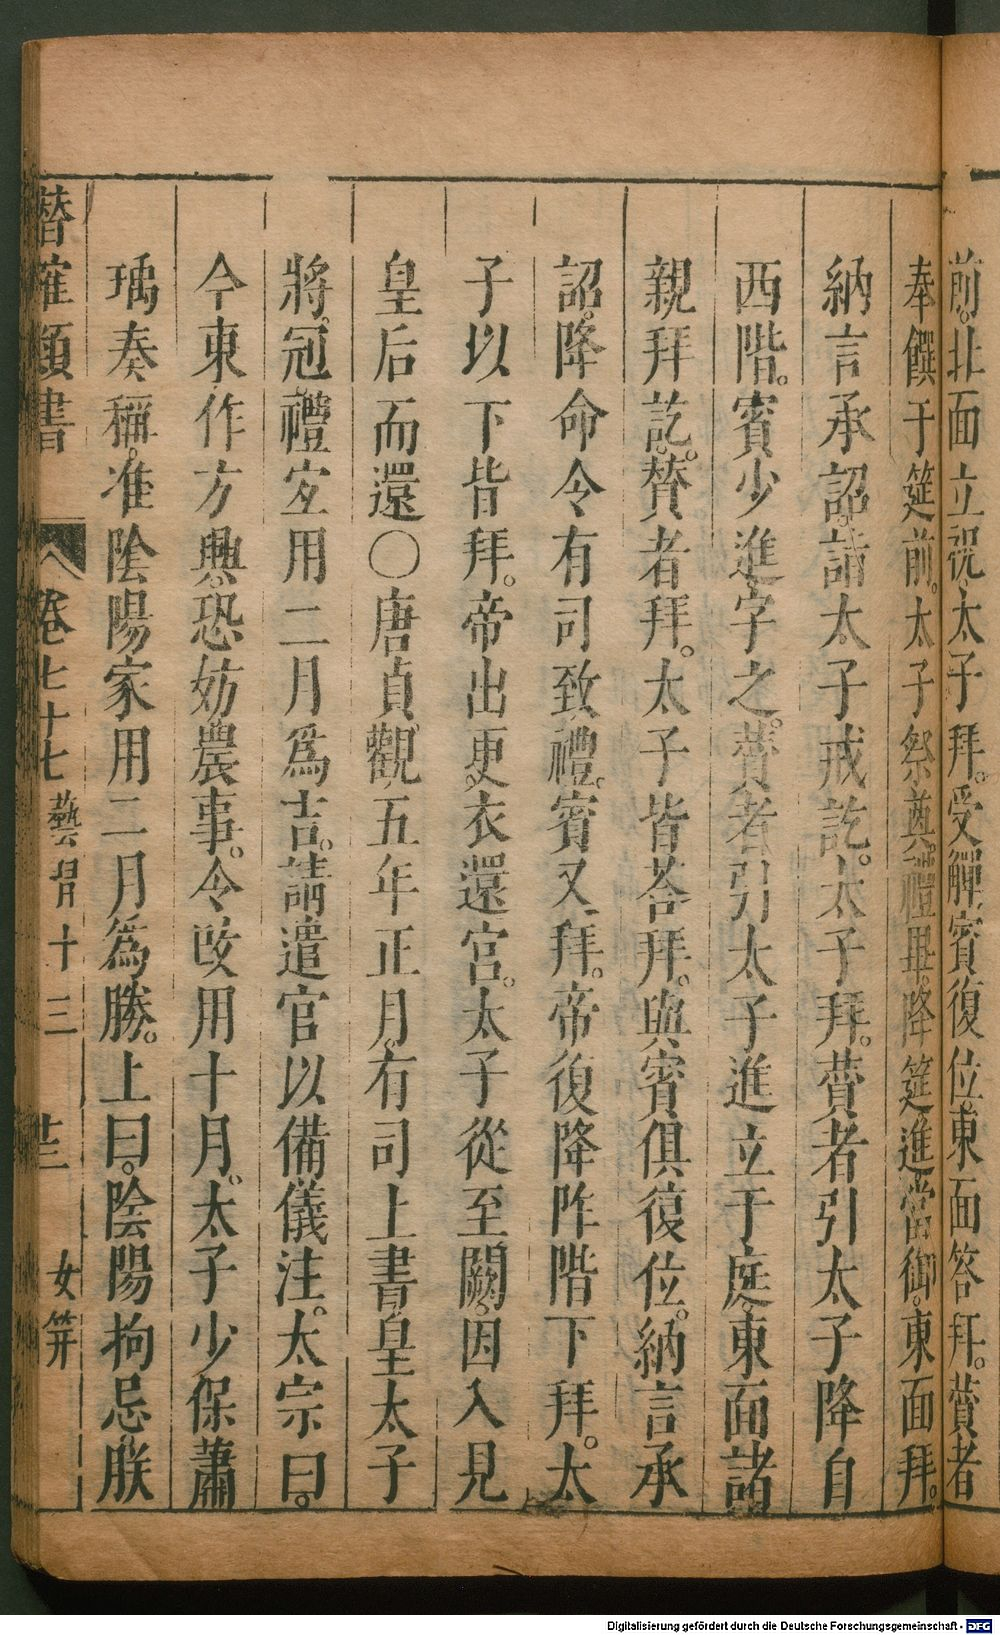 前。北面立祝。太子拜。受觶。賓復位。東面答拜。贊者
奉饌于筵前。太子祭奠。禮畢。降筵進當御。東面拜。
納言承詔。請太子戒訖。太子拜。贊者引太子降自
西階。賓少進字之。贊者引太子進立于庭。東面諸
親拜訖。贊者拜。太子皆荅拜。與賓俱復位。納言承
詔。降命令有司致禮。賓又拜。帝復降阼階下拜。太
子以下皆拜。帝出更衣還宮。太子從至闕。因入見
皇后而還〇唐貞觀五年正月。有司上書皇太子
將冠禮宜用二月爲吉。請遣官以備儀注。太宗曰。
今東作方興。恐妨農事。令改用十月。太子少保蕭
瑀奏稱。准陰陽家用二月爲勝。上曰。陰陽拘忌朕
潛確類書
卷七十七
藝習十三
女笄
Digitalisierung gefördert durch die Deutsche Forschungsgemeinschaft - DFG